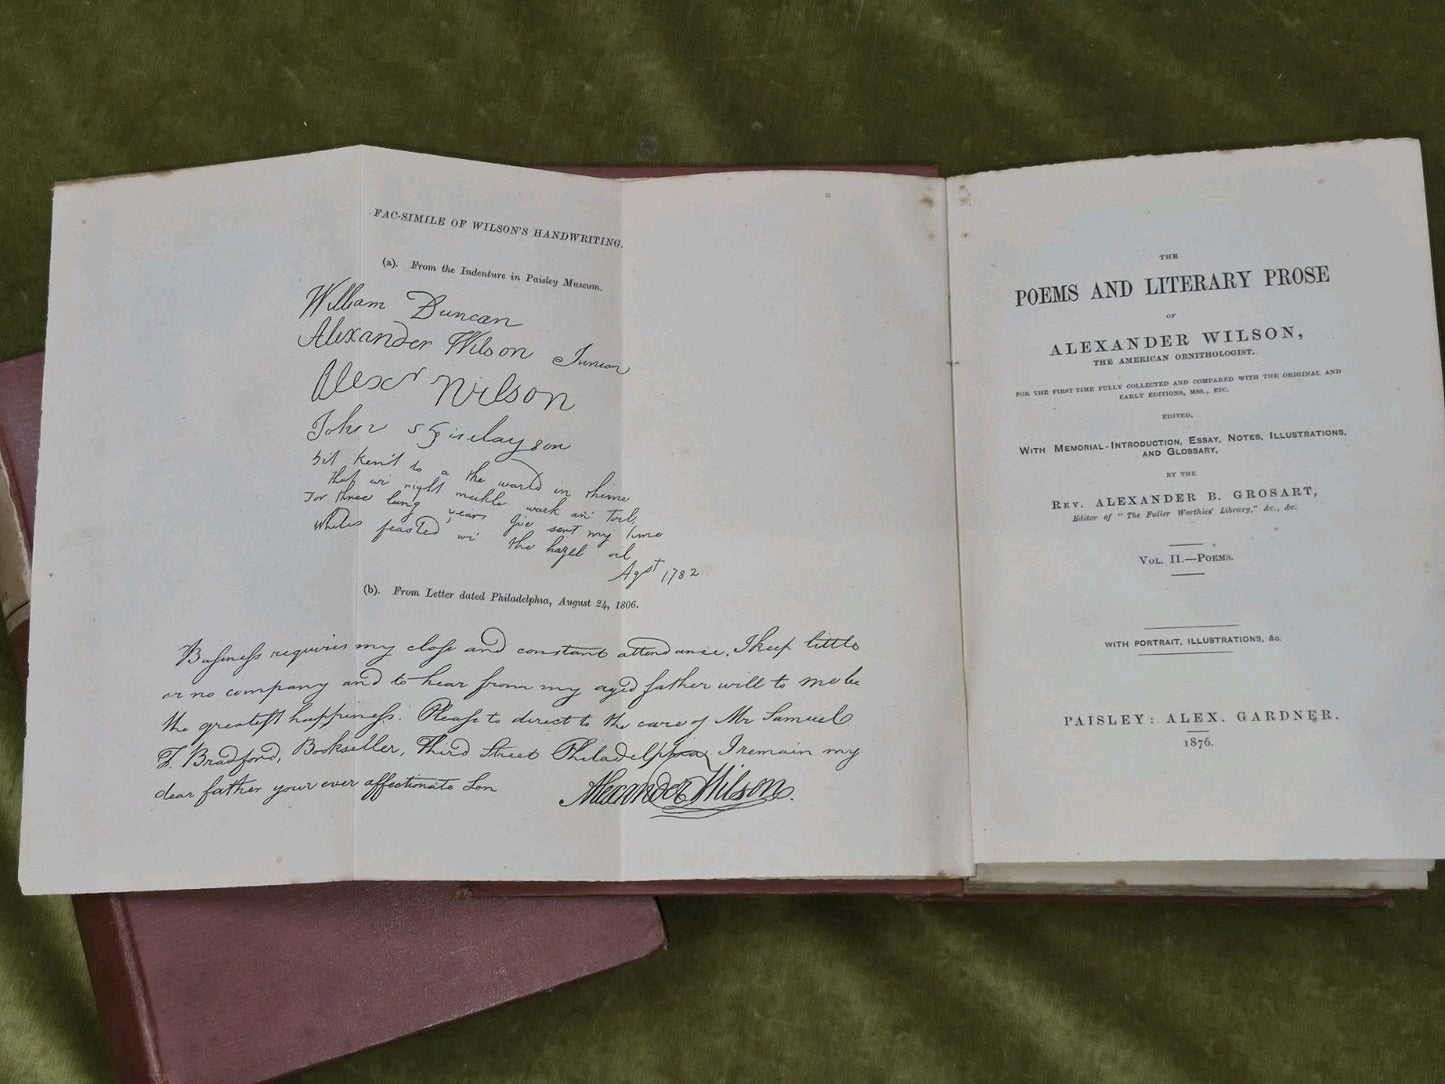 FAC-SIMILE OF WILSON'S HANDWRITING.
(a). From the Indenture in Paisley Museum.
William Duncan
Alexander Wilson Junior
Alexr Wilson
John
bit ken't to a the warld in rhime
that wi' right meikle wark an' toil
For three lang years I've sert my time
Whiles feasted wi' the hazel oil
Agst 1782
(b). From Letter dated Philadelphia, August 24, 1806.
Business requires my close and constant attendance. I keep little
or no company and to hear from my aged father will to me be
the greatest happiness. Please to direct to the care of Mr Samuel
F. Bradford, Bookseller, Third Street Philadelphia, I remain my
dear father your ever affectionate Son
Alexander Wilson.
THE
POEMS AND LITERARY PROSE
OF
ALEXANDER WILSON,
THE AMERICAN ORNITHOLOGIST.
FOR THE FIRST TIME FULLY COLLECTED AND COMPARED WITH THE ORIGINAL AND
EARLY EDITIONS, MSS., ETC.
EDITED,
WITH MEMORIAL-INTRODUCTION, ESSAY, NOTES, ILLUSTRATIONS,
AND GLOSSARY,
BY THE
REV. ALEXANDER B. GROSART,
Editor of "The Fuller Worthies' Library," &c., &c.
VOL. II.—POEMS.
WITH PORTRAIT, ILLUSTRATIONS, &c.
PAISLEY: ALEX. GARDNER.
1876.